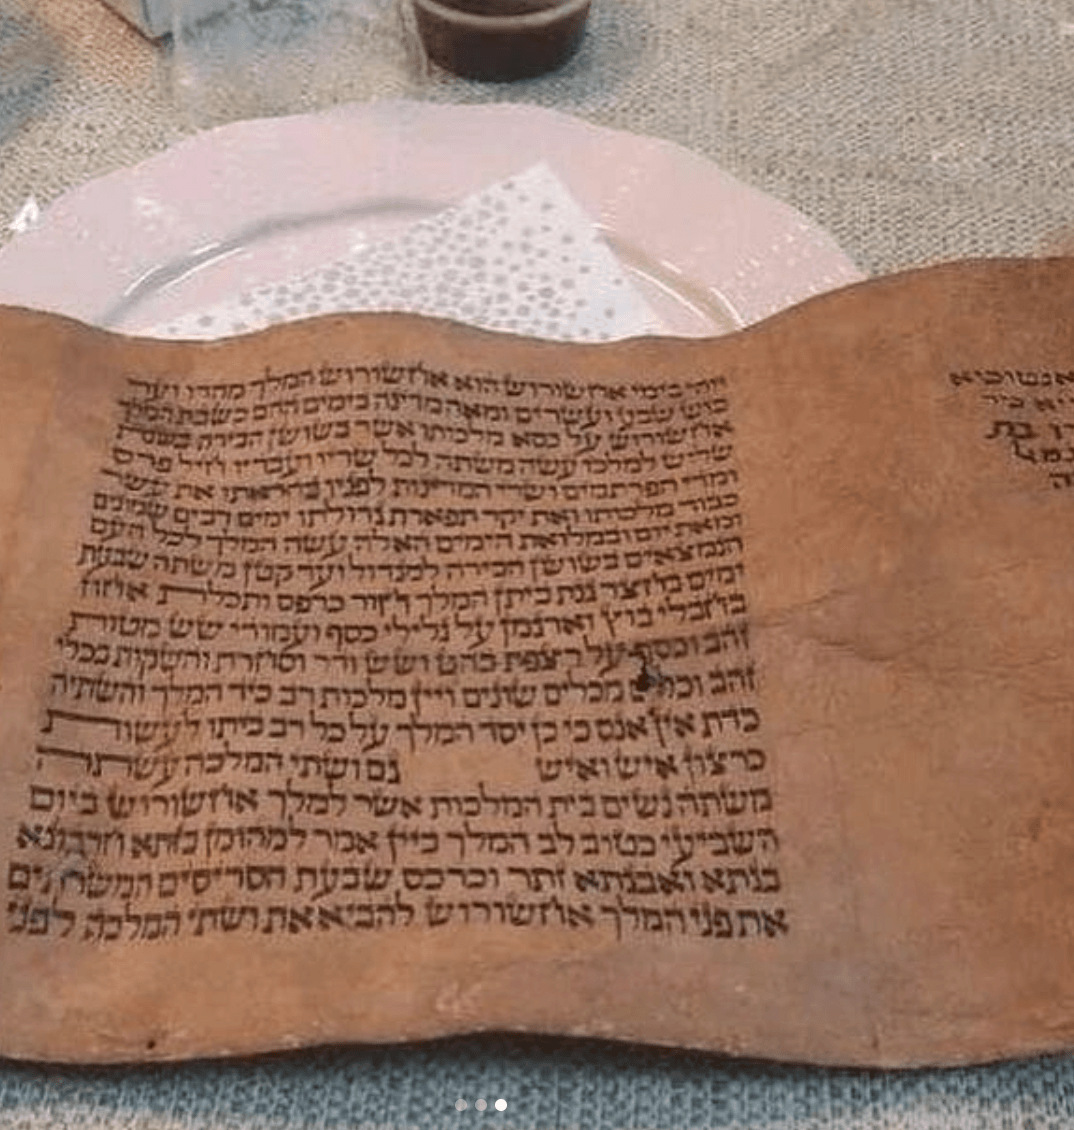 ויהי בימי אחשורוש הוא אחשורוש המלך מהדו ועד
כוש שבע ועשרים ומאה מדינה בימים ההם כשבת המלך
אחשורוש על כסא מלכותו אשר בשושן הבירה בשנת
שלוש למלכו עשה משתה לכל שריו ועבדיו חיל פרס
ומדי הפרתמים ושרי המדינות לפניו בהראתו את עשר
כבוד מלכותו ואת יקר תפארת גדולתו ימים רבים שמונים
ומאת יום ובמלואת הימים האלה עשה המלך לכל העם
הנמצאים בשושן הבירה למגדול ועד קטן משתה שבעת
ימים בחצר גנת ביתן המלך חור כרפס ותכלת אחוז
בחבלי בוץ וארגמן על גלילי כסף ועמודי שש מטות
זהב וכסף על רצפת בהט ושש ודר וסחרת והשקות בכלי
זהב וכלים מכלים שונים ויין מלכות רב כיד המלך והשתיה
כדת אין אנס כי כן יסד המלך על כל רב ביתו לעשות
כרצון איש ואיש גם ושתי המלכה עשתה
משתה נשים בית המלכות אשר למלך אחשורוש ביום
השביעי כטוב לב המלך ביין אמר למהומן בזתא חרבונא
בגתא ואבגתא זתר וכרכס שבעת הסריסים המשרתים
את פני המלך אחשורוש להביא את ושתי המלכה לפני